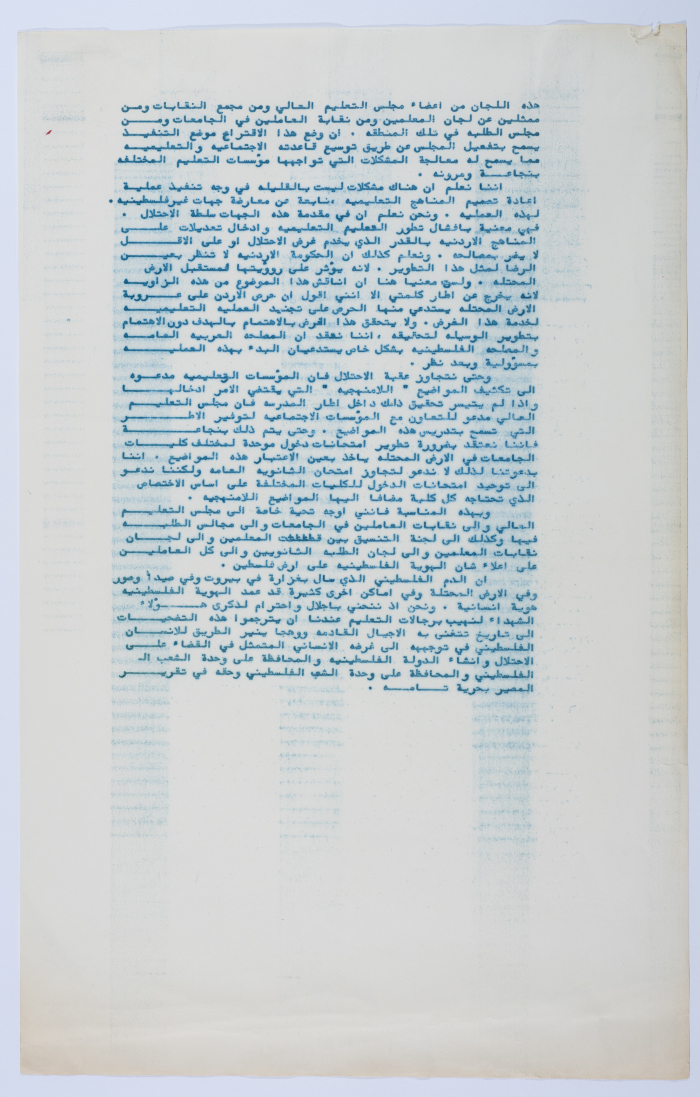 هذه اللجان من اعضاء مجلس التعليم العالي ومن مجمع النقابات ومـن
ممثلين عن لجان المعلمين ومن نقابة العاملين في الجامعات ومـــن
مجلس الطلبه في تلك المنطقه . ان وضع هذا الاقتراح موضع التنفيـذ
يسمح بتفعيل المجلس عن طريق توسيع قاعدته الاجتماعيه والتعليميــه
مما يسمح له معالجة المشكلات التي تواجهها مؤسسات التعليم المختلفه
بنجاعــة ومرونه .
اننا نعلم ان هناك مشكلات ليست بالقليله في وجه تنفيذ عمليـة
اعادة تصميم المناهج التعليميه ،نابعة عن معارضة جهات غيرفلسطينيه .
لهذه العمليه . ونحن نعلم ان في مقدمة هذه الجهات سلطة الاحتلال .
فهي معنية بافشال تطور التعليم التعليميه وادخال تعديلات علـــى
المناهج الاردنيه بالقدر الذي يخدم غرض الاحتلال او على الاقـــل
لا يضر بمصالحه . ونعلم كذلك ان الحكومة الاردنيه لا تنظر بعيــن
الرضا لمثل هذا التطوير . لانه يؤثر على رؤويتها لمستقبل الارض
المحتله . ولست معنيا هنا ان اناقش هذا الموضوع من هذه الزاويــه
لانه يخرج عن اطار كلمتي الا انني اقول ان حرص الاردن على عـروبة
الارض المحتله يستدعي منها الحرص على تجنيد العمليه التعليميـــه
لخدمة هذا الغرض . ولا يتحقق هذا الغرض بالاهتمام بالهدف دون الاهتمام
بتطوير الوسيله لتحقيقه ، اننا نعتقد ان المصلحه العربيه العامـــه
والمصلحه الفلسطينيه بشكل خاص يستدعيان البدء بهذه العمليـــه
بمسؤولية وبعد نظر .
وحتى نتجاوز عقبة الاحتلال فـان المؤسسات التعليميه مدعـوه
الى تكثيف المواضيع " اللامنهجيه " التي يقتضي الامر ادخالهـــا
واذا لم يتيسر تحقيق ذلك داخل اطار المدرسه فـان مجلس التعليـم
العالي مدعو للتعاون مع المؤسسات الاجتماعيه لتوفير الاطـــر
التي تسمح بتدريس هذه المواضيع . وحتى يتم ذلك بنجاعـــة
فاننا نعتقد بضرورة تطوير امتحانات دخول موحدة لمختلف كليــات
الجامعات في الارض المحتله ياخذ بعين الاعتبار هذه المواضيع . اننا
بدعوتنا لذلك لا ندعو لتجاوز امتحان الثانويه العامه ولكننا ندعـو
الى توحيد امتحانات الدخول للكليات المختلفة على اساس الاختصاص
الذي تحتاجه كل كلية مضافا اليها المواضيع اللامنهجيه .
وبهذه المناسبة فانني اوجه تحية خاصة الى مجلس التعليــم
العالي والى نقابات العاملين في الجامعات والى مجالس الطلبــه
فيها وكذلك الى لجنة التنسيق بين المعلمين والى لجــان
نقابات المعلمين والى لجان الطلبه الثانويين والى كل العامليـن
على اعلاء شان الهوية الفلسطينيه على ارض فلسطين .
ان الدم الفلسطيني الذي سال بغزارة في بيروت وفي صيدا وصور
وفي الارض المحتلة وفي اماكن اخرى كثيرة قد عمد الهوية الفلسطينيه
هوية انسانية . ونحن اذ ننحني باجلال واحترام لذكرى هــؤلاء
الشهداء لنهيب برجالات التعليم عندنا ان يترجموا هذه التضحيــات
الى تاريخ تتغنى به الاجيال القادمه ووهجا ينير الطريق للانســان
الفلسطيني في توجيهه الى غرضه الانساني المتمثل في القضاء علــى
الاحتلال وانشاء الدولة الفلسطينيه والمحافظة على وحدة الشعب الـ
الفلسطيني والمحافظة على وحدة الشعب الفلسطيني وحقه في تقريــر
المصير بحرية تـامــه .